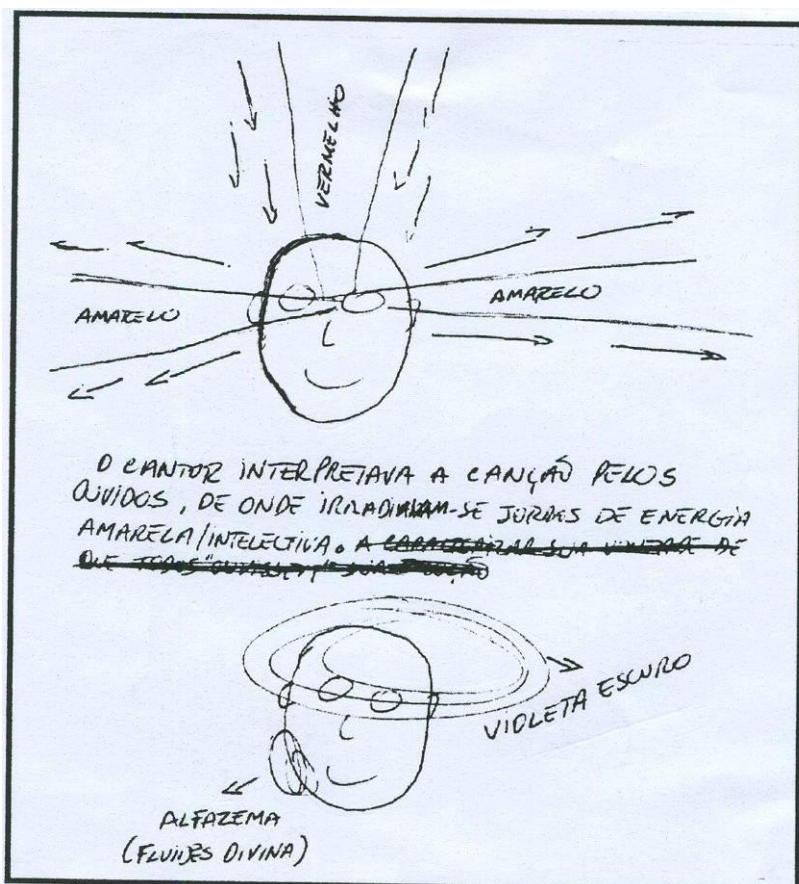 VERMELHO
AMARELO
AMARELO
O CANTOR INTERPRETAVA A CANÇÃO PELOS
OUVIDOS, DE ONDE IRRADIAVAM-SE JORRAS DE ENERGIA
AMARELA/INTELECTIVA. A CARACTERIZAR SUA DE
QUE TODOS
VIOLETA ESCURO
ALFAZEMA
(FLUIDES DIVINA)